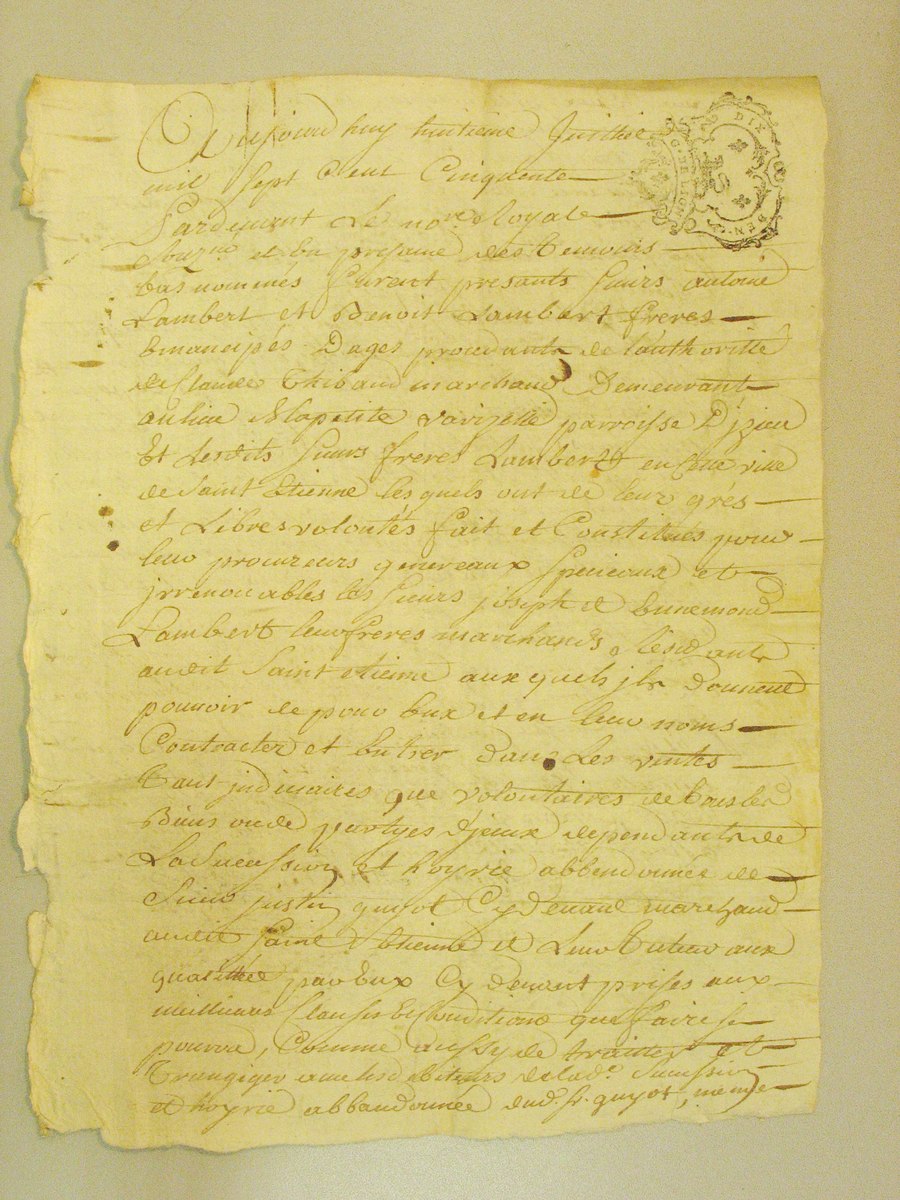 Aujourd huy huitieme Juillie
mil sept Cent Cinquante
Pardevant Le no.re Royale
Souz.né et En presance des temoins
bas nommés furent presants sieurs antoine
Lambert et Benoit Lambert freres
Emancipés Dages procedants de l'authorité
de Claude Thibaud marchand Demeurant
au lieu de la petite varizelle parroisse D'jzieu
Et lesdits sieurs freres Lambert en Cette ville
de Saint Etienne les quels ont de leur grés
et Libres volontés fait et Constitués pour
leur procureurs genereaux speciaux et
jrrevocables les sieurs joseph et Ennemond
Lambert leur freres marchands Residants
audit Saint etienne aux quels jls Donnent
pouvoir de pour Eux et en leur noms
Contracter et Entrer dans Les ventes
tant judiciaires que volontaires de tous les
Biens ou de partyes d'jeux dependants de
La Sucession et hoyrie abbendonnée de
Sieur juste guyot Cy devant marchand
audit Saint Etienne et Leur tuteur aux
qualittée par Eux Cy devant prises aux
meilleures Clauses Et Conditions que faire se
pourra, Comme aussy de traitter et
trangiger avec les debiteurs de lad.e Sucession
et hoyrie abbandonnée dud. sr. guyot, meme
DIX DEN.